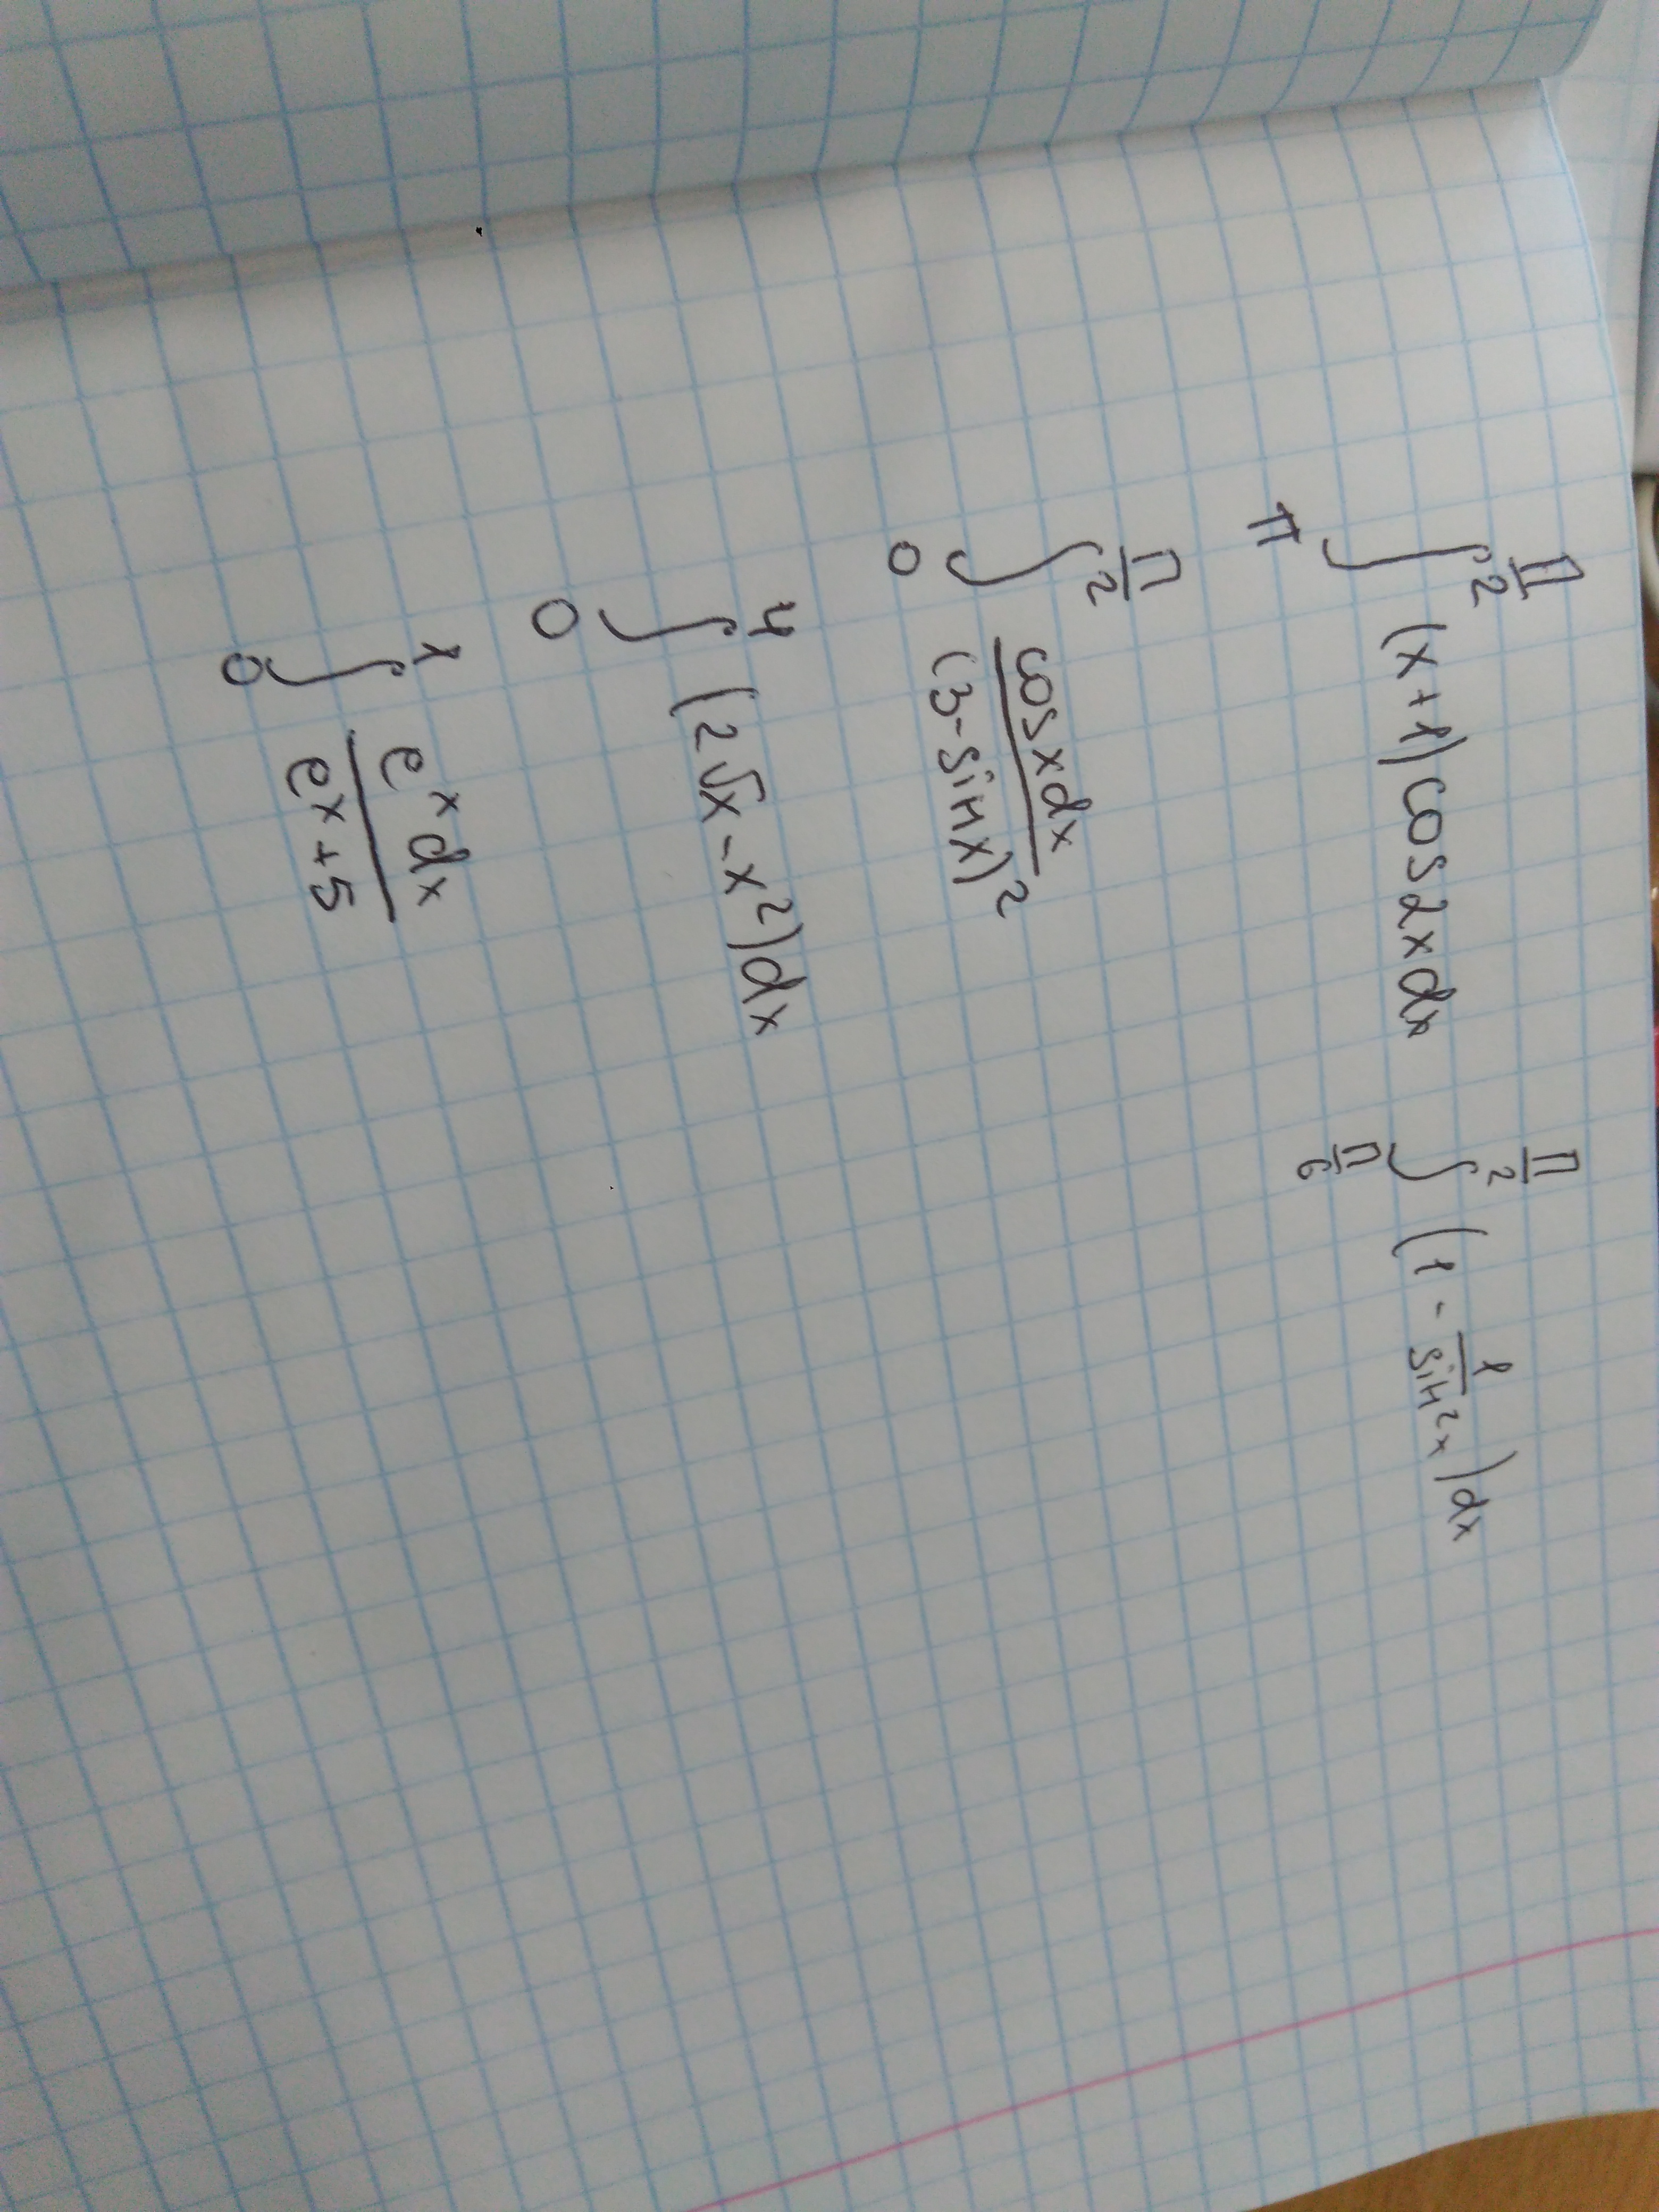 ∫_π^{π/2} (x+1) cos2xdx   ∫_{π/6}^{π/2} (1 - 1/sin²x)dx
∫_0^{π/2} cosxdx/(3-sinx)²
∫_0^4 (2√x - x²)dx
∫_0^1 e^x dx/(e^x+5)